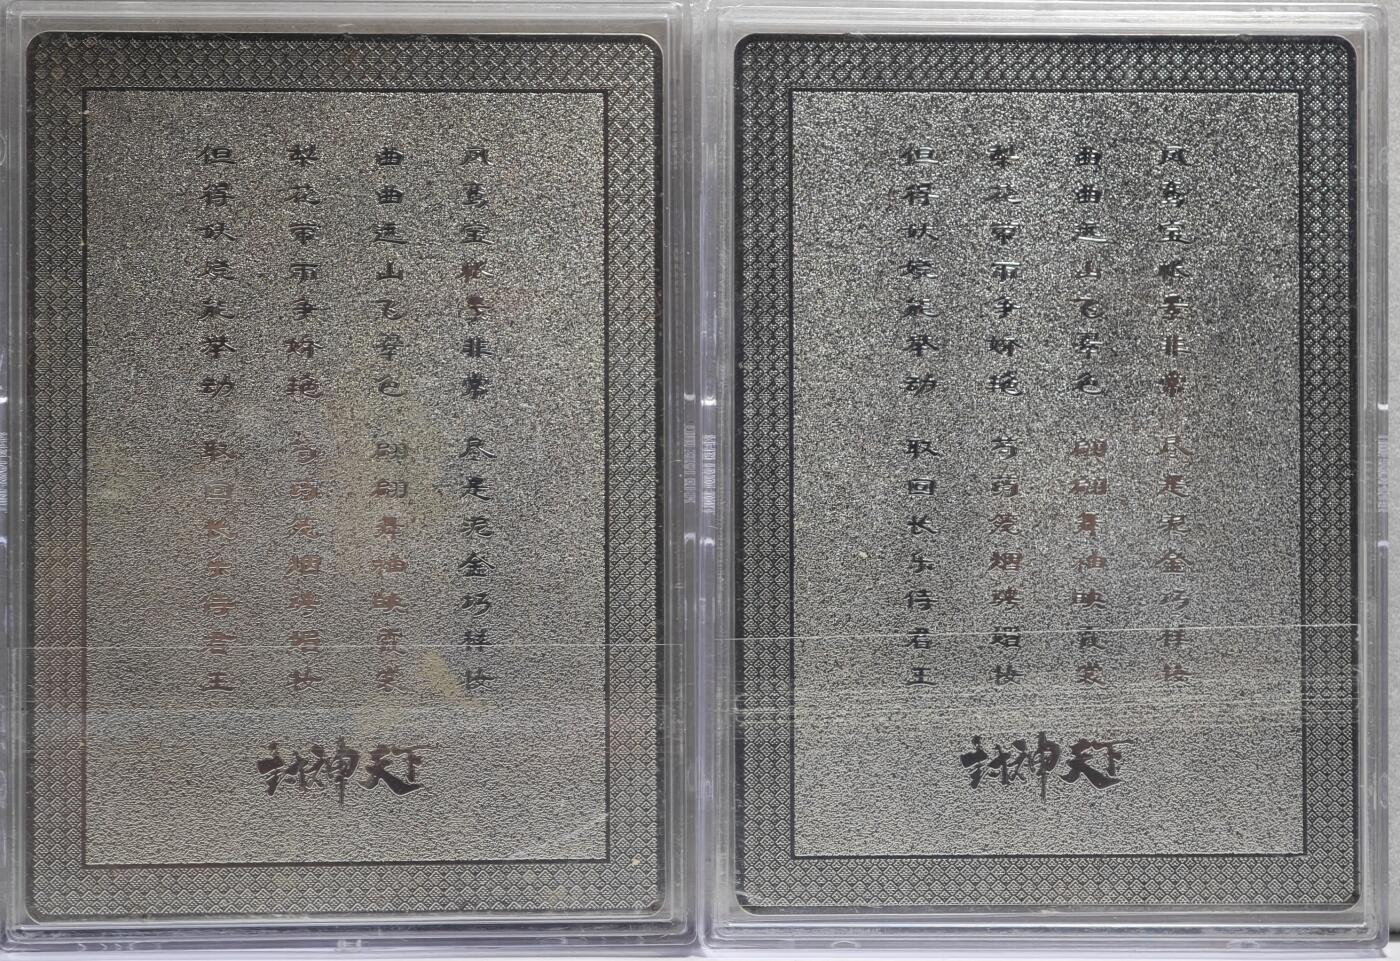 凤鸾宝帐景非常 尽是泥金巧样妆
曲曲远山飞翠色 翩翩舞袖映霞裳
梨花带雨争娇艳 芍药笼烟骋媚妆
但得妖娆能举动 取回长乐侍君王
封神天下
凤鸾宝帐景非常 尽是泥金巧样妆
曲曲远山飞翠色 翩翩舞袖映霞裳
梨花带雨争娇艳 芍药笼烟骋媚妆
但得妖娆能举动 取回长乐侍君王
封神天下